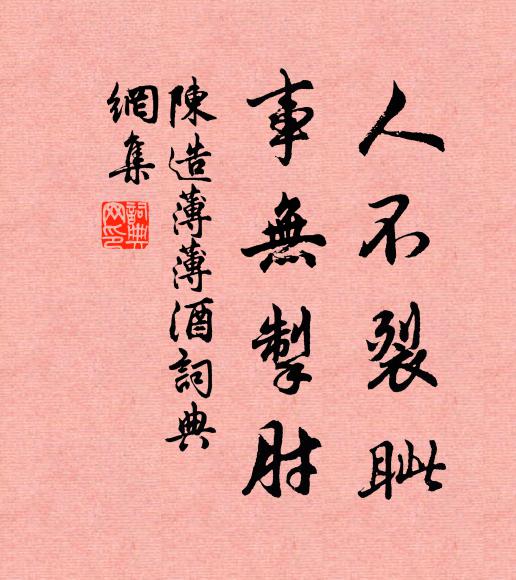 人不裂眦
事無掣肘
陳造薄薄酒詞典
網集
詞典
网印